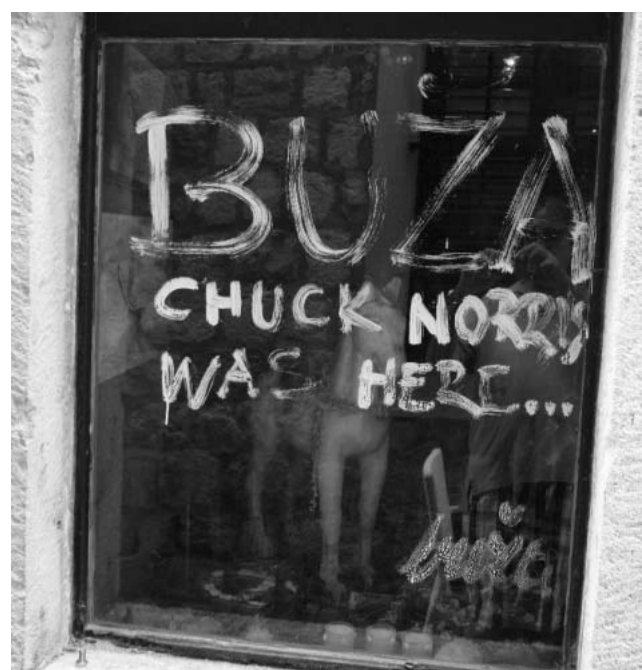 BUŽA
CHUCK NORRY
WAS HERE...
buža